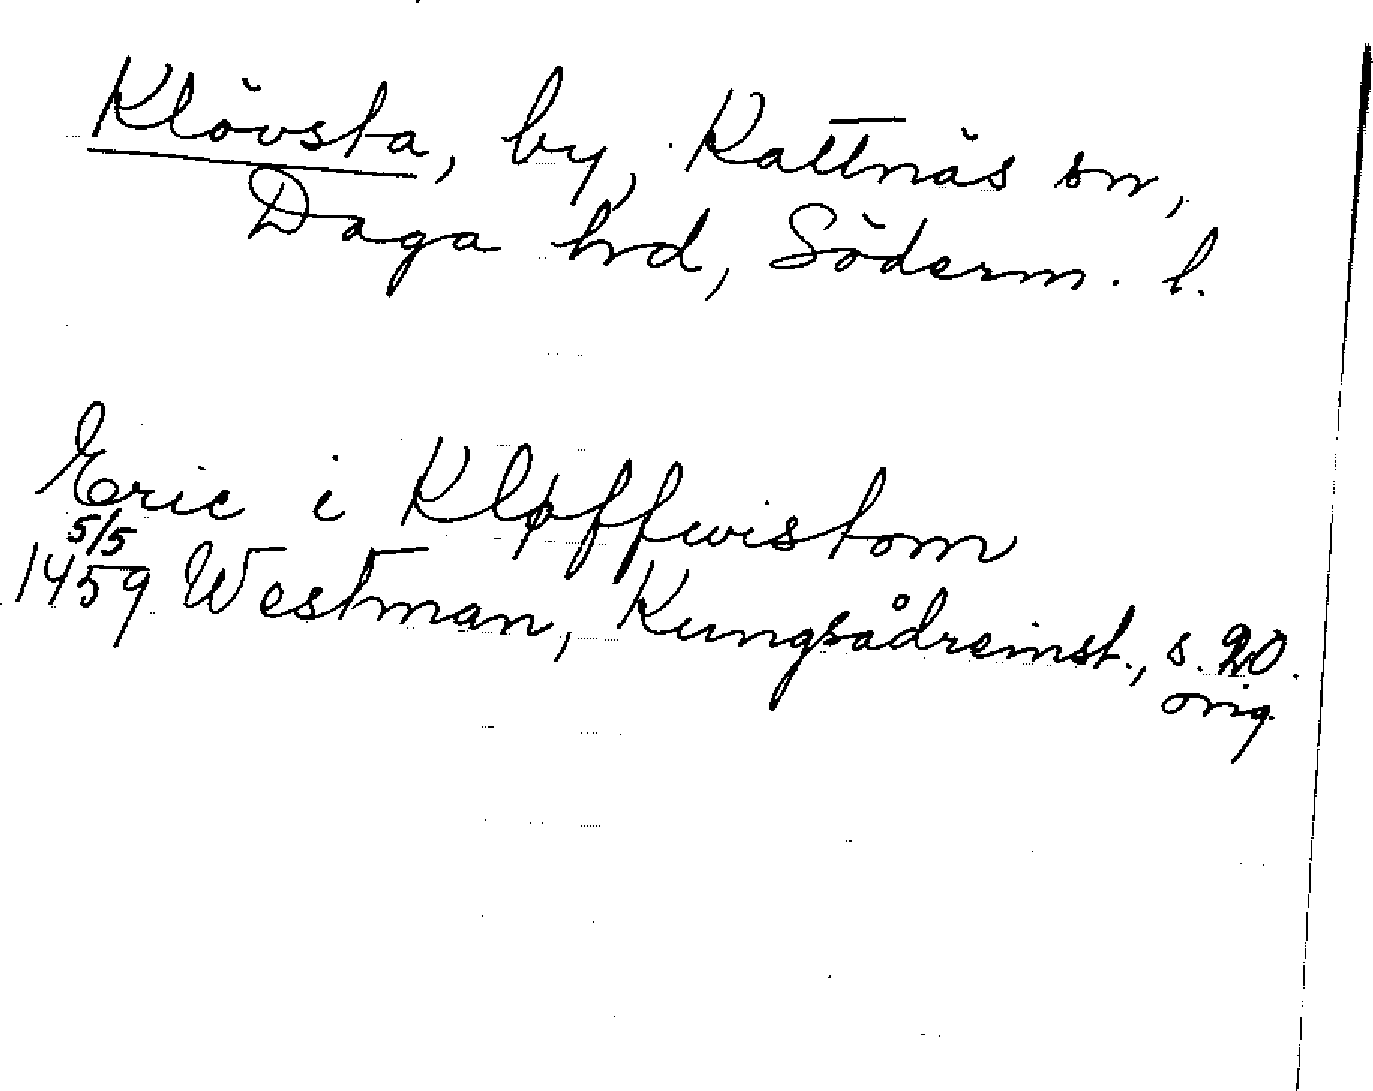 Klövsta, by, Kattnäs sn,
Daga hd, Söderm. l.
Eric i Kløffwistom
5/5
1459 Westman, Kungsådreinst., s. 20.
orig